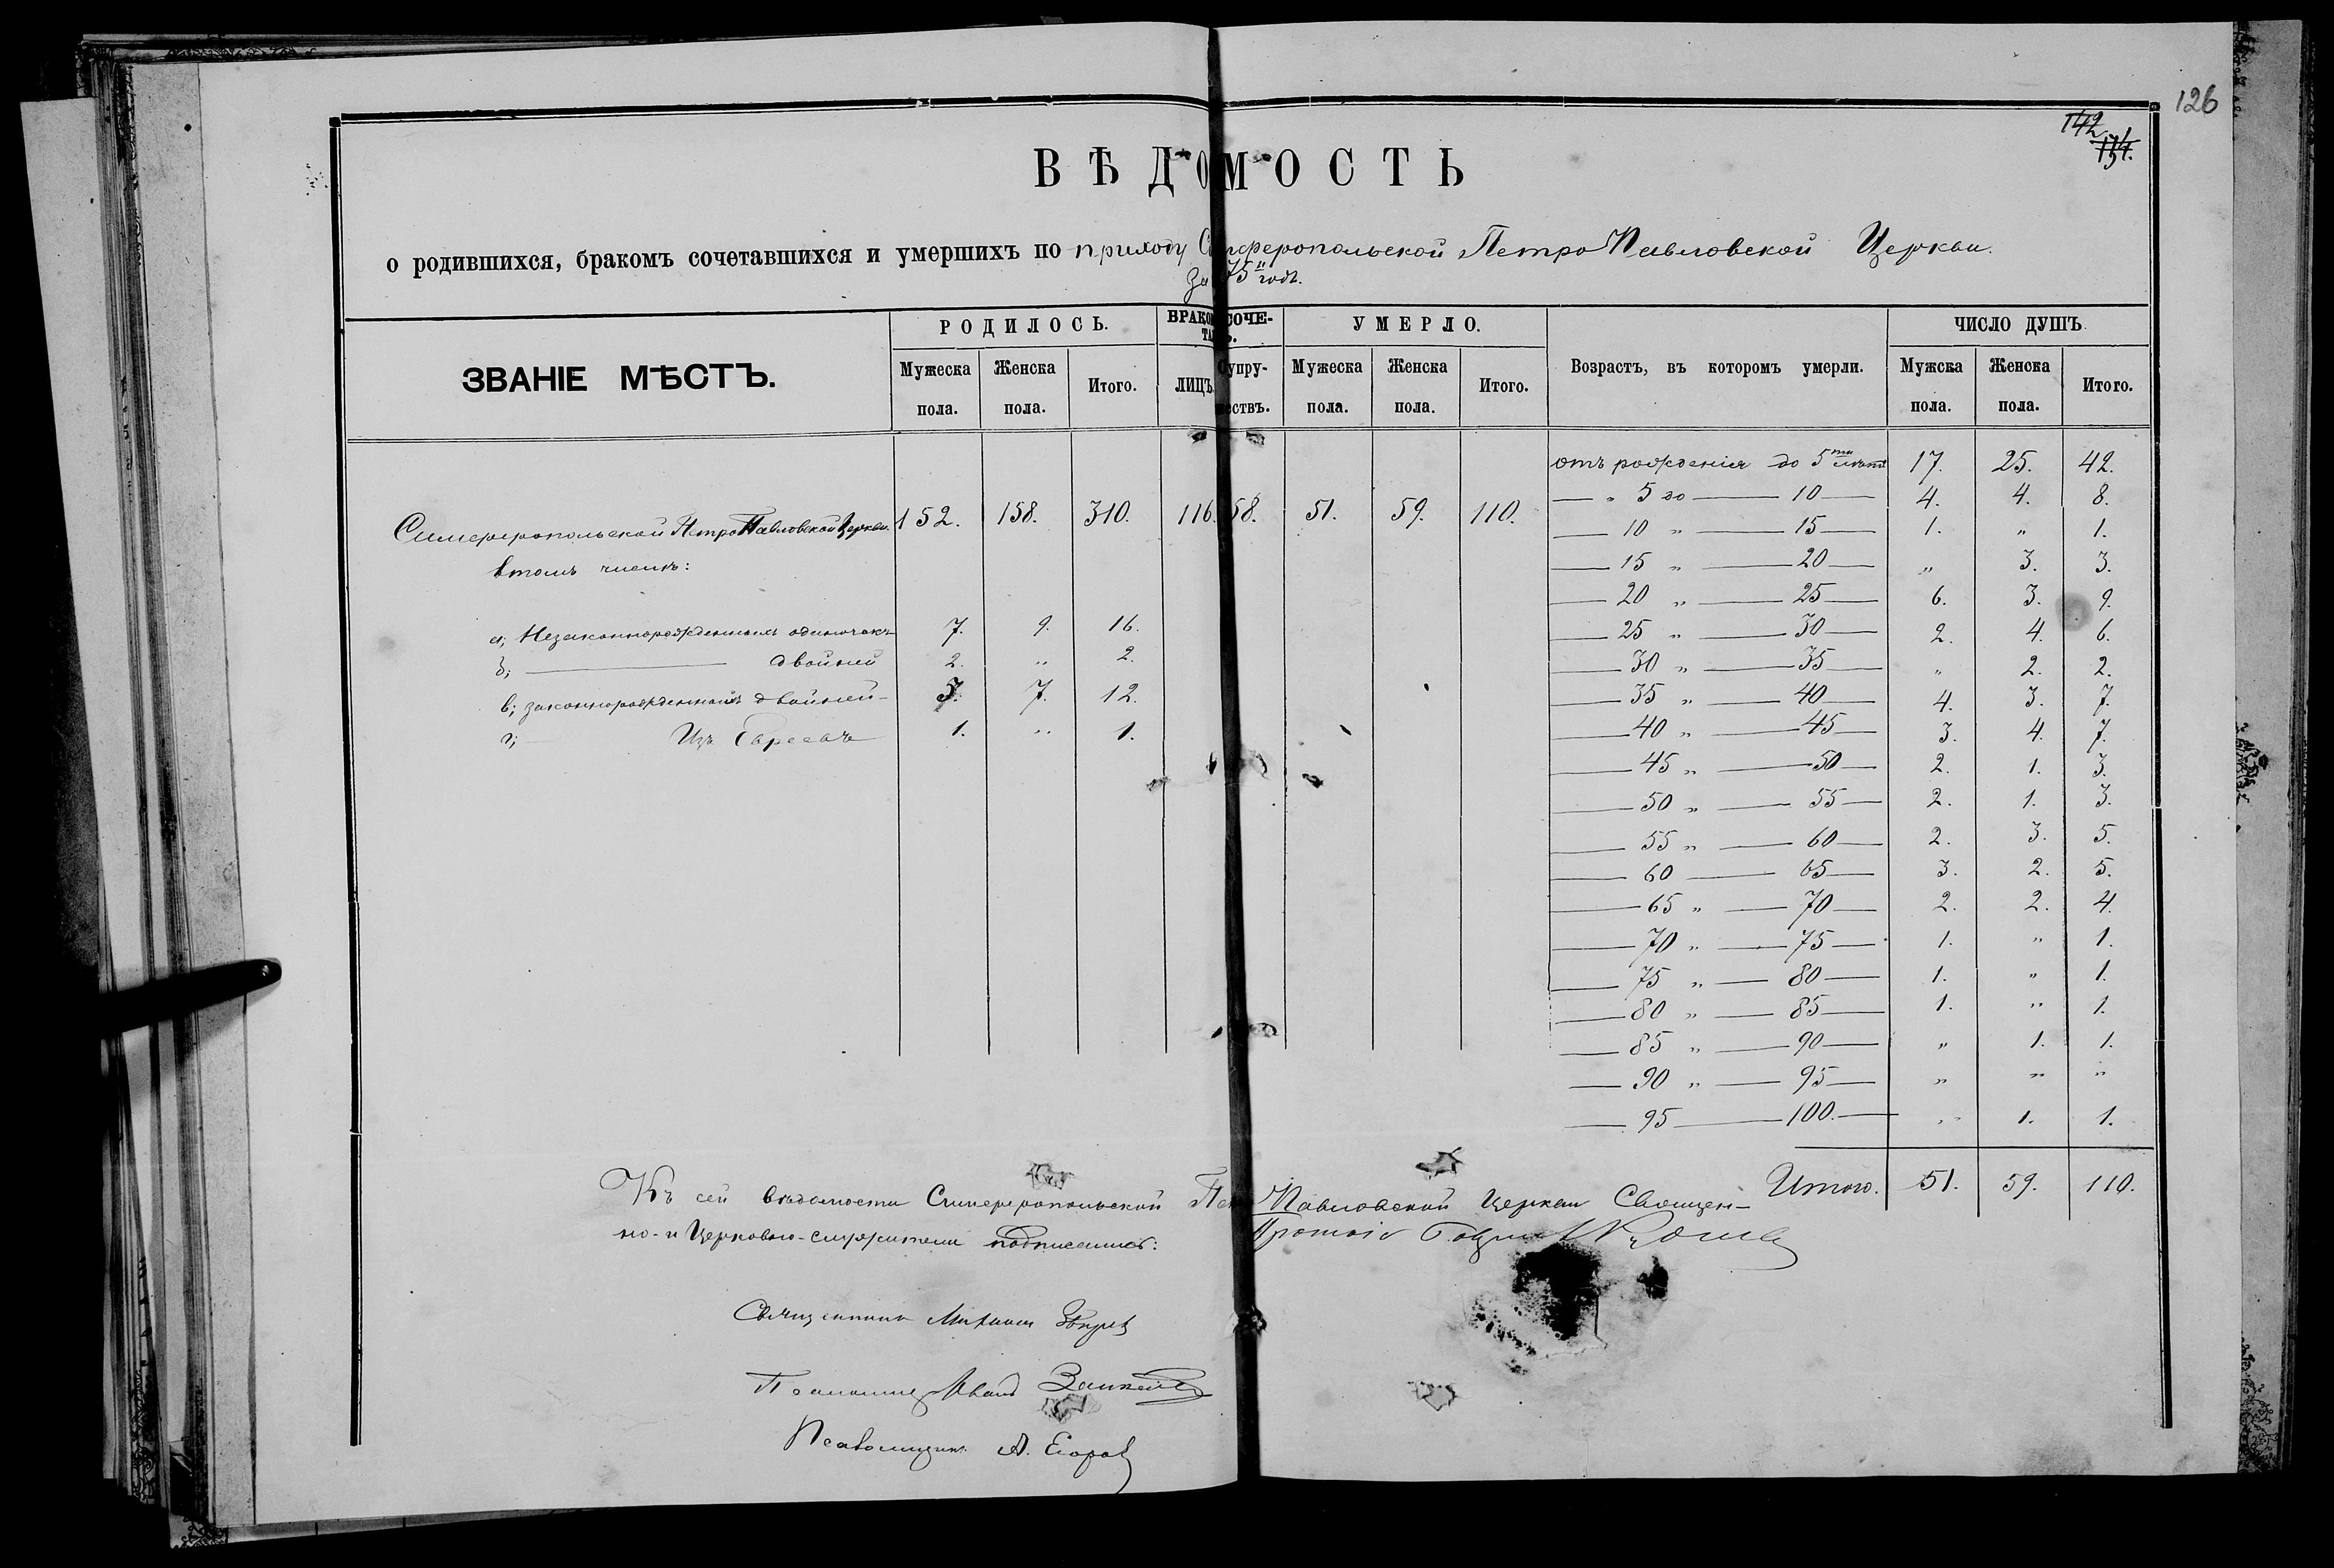 126
142
134.
ВѢДОМОСТЬ
о родившихся, бракомъ сочетавшихся и умершихъ по приходу Симферопольской ПетроПавловской Церкви.
За 75й годъ.
ЗВАНІЕ МѢСТЪ. РОДИЛОСЬ. БРАКОМ СОЧЕ- УМЕРЛО. Возрастъ, въ которомъ умерли. ЧИСЛО ДУШЪ
Мужеска пола. Женска пола. Итого. ЛИЦЪ Супру- Мужеска пола. Женска пола. Итого. Мужска пола. Женска пола. Итого.
Симферопольской ПетроПавловской Церкви. 152. 158. 310. 116. 58. 51. 59. 110.
в томъ числѣ:
а; Незаконнорожденныхъ одиночекъ 7. 9. 16.
б; — двойней 2. „ 2.
в; законнорожденныхъ двойней 5. 7. 12.
г; — Изъ Евреевъ 1. „ 1.
отъ рожденія до 5ти лѣтъ 17. 25. 42.
— „ 5 до — 10 — 4. 4. 8.
— 10 „ — 15 — 1. „ 1.
— 15 „ — 20 — „ 3. 3.
— 20 „ — 25 — 6. 3. 9.
— 25 „ — 30 — 2. 4. 6.
— 30 „ — 35 — „ 2. 2.
— 35 „ — 40 — 4. 3. 7.
— 40 „ — 45 — 3. 4. 7.
— 45 „ — 50 — 2. 1. 3.
— 50 „ — 55 — 2. 1. 3.
— 55 „ — 60 — 2. 3. 5.
— 60 — 65 — 3. 2. 5.
— 65 „ — 70 — 2. 2. 4.
— 70 „ — 75 — 1. „ 1.
— 75 „ — 80 — 1. „ 1.
— 80 „ — 85 — 1. „ 1.
— 85 „ — 90 — „ 1. 1.
— 90 „ — 95 — „ „ „
— 95 — 100. — „ 1. 1.
Итого. 51. 59. 110.
Къ сей вѣдомости Симферопольской Павловской Церкви Священ-
но- и Церковно-служители подписались:
Священникъ Михаилъ
Псаломщ Иванъ
Псаломщикъ А. Егоров